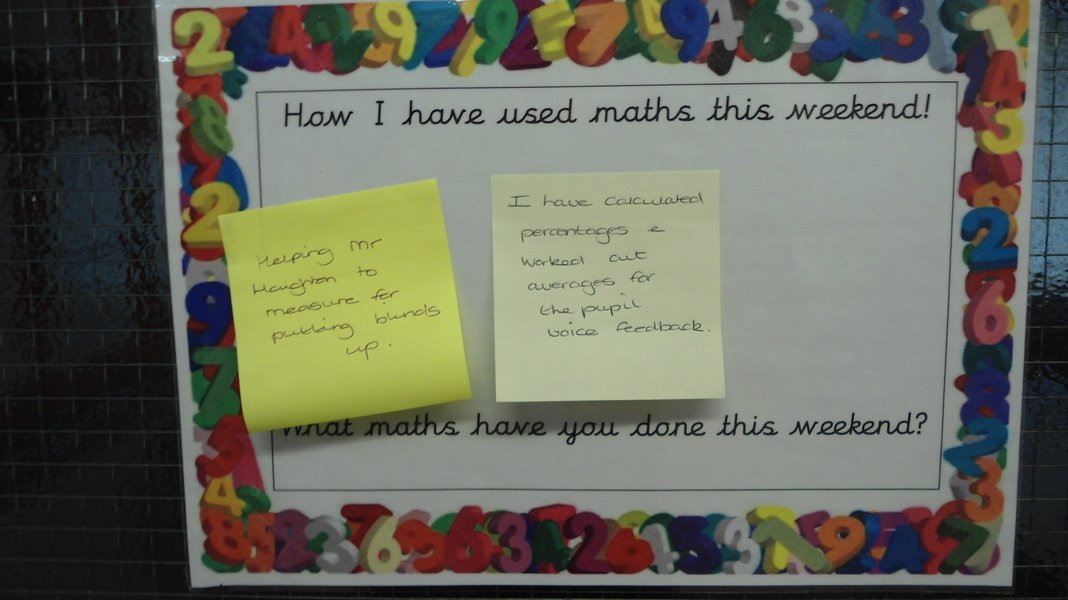 How I have used maths this weekend!
Helping Mr
Haughton to
measure for
putting blinds
up.
I have calculated
percentages &
worked out
averages for
the pupil
voice feedback.
What maths have you done this weekend?